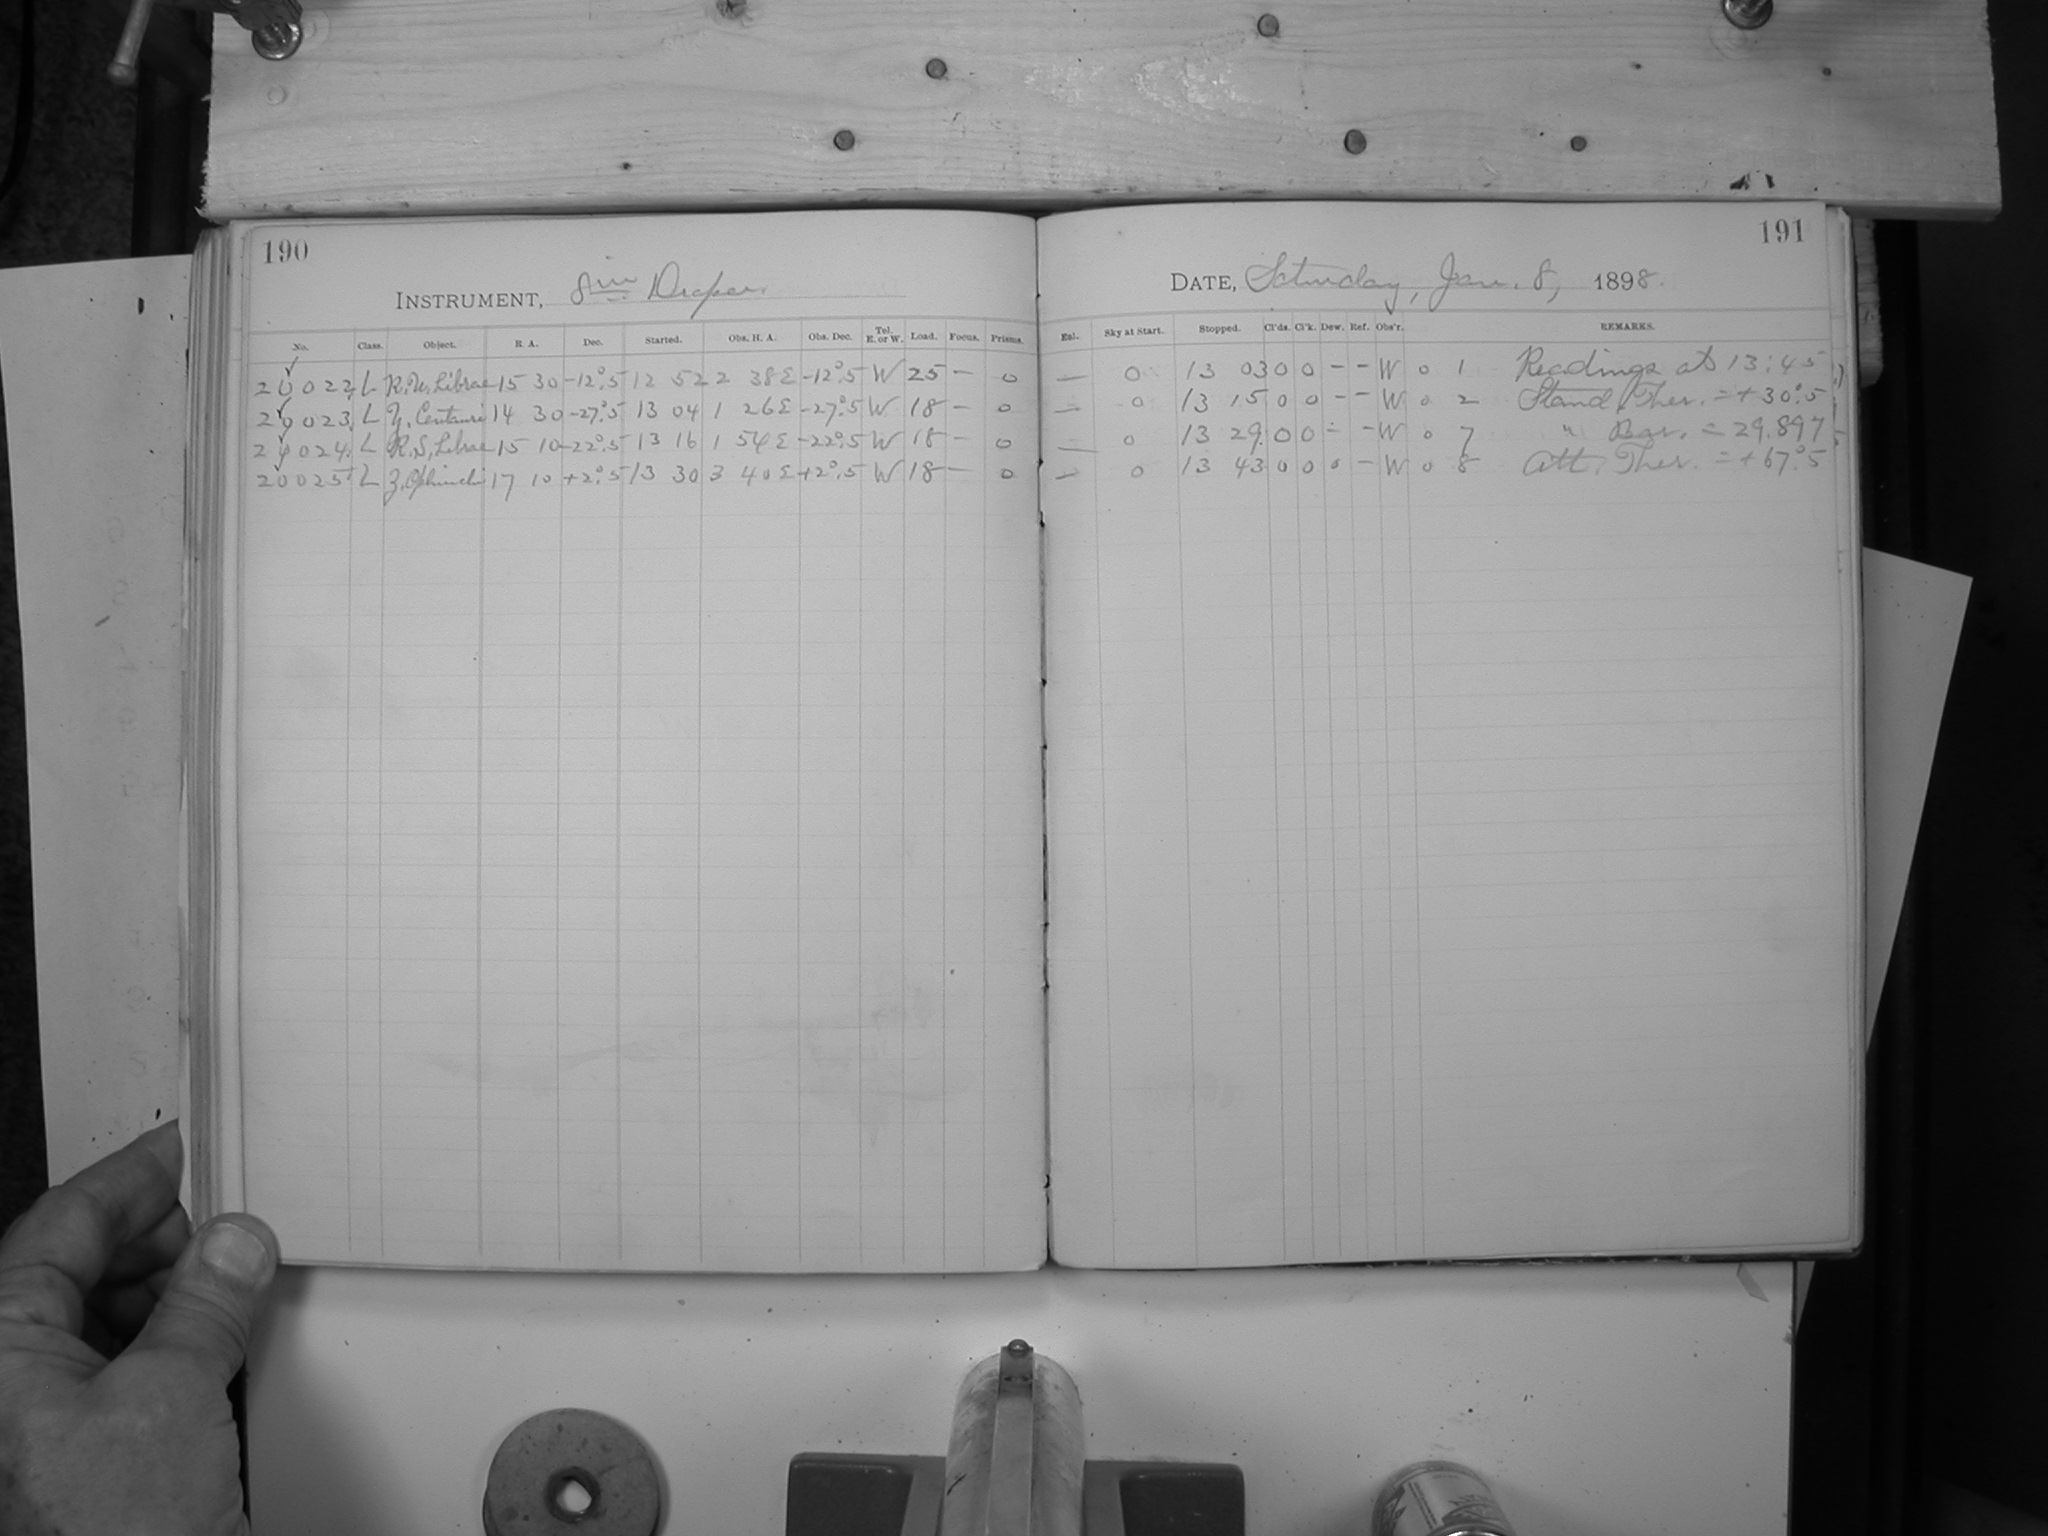 190
INSTRUMENT, 8 in Draper
No. Class. Object. R. A. Dec. Started. Obs. H. A. Obs. Dec. Tel. E. or W. Load. Focus. Prisms.
20022 L R.U. Librae 15 30 -12°.5 12 52 2 38 E -12°.5 W 25 — 0
20023 L Y. Centauri 14 30 -27°.5 13 04 1 26 E -27°.5 W 18 — 0
20024 L R.S. Librae 15 10 -22°.5 13 16 1 54 E -22°.5 W 18 — 0
20025 L Z. Ophiuchi 17 10 +2°.5 13 30 3 40 E +2°.5 W 18 — 0
191
DATE, Saturday, Jan. 8, 1898.
Enl. Sky at Start. Stopped. Cl'ds. Cl'k. Dew. Ref. Obs'r. REMARKS.
— 0 13 03 0 0 - - W 0 1 Readings at 13:45
— 0 13 15 0 0 - - W 0 2 Stand. Ther. = +30°.5
— 0 13 29 0 0 - - W 0 7 " Bar. = 29.897
— 0 13 43 0 0 0 - W 0 8 Att. Ther. = +67°.5